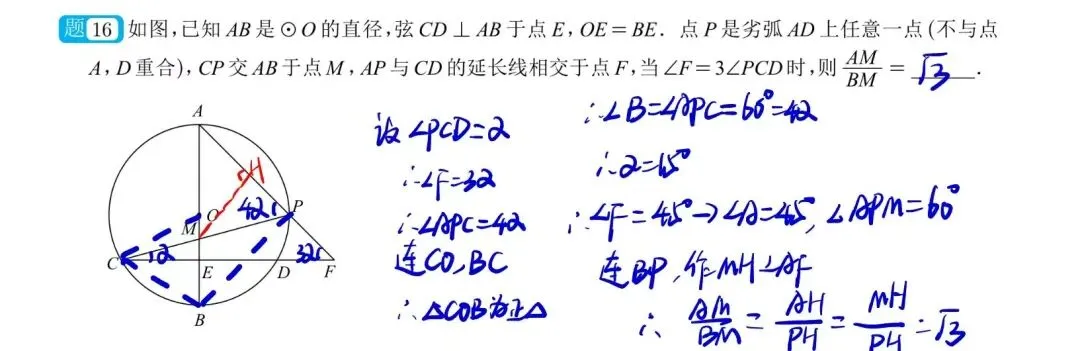 题16 如图,已知AB是⊙O的直径,弦CD⊥AB于点E,OE=BE. 点P是劣弧AD上任意一点(不与点
A,D重合),CP交AB于点M,AP与CD的延长线相交于点F,当∠F=3∠PCD时,则AM/BM=√3.
设∠PCD=α
∴∠F=3α
∴∠APC=4α
连CO,BC
∴△COB为正△
∴∠B=∠APC=60°=4α
∴α=15°
∴∠F=45°→∠A=45°,∠APM=60°
连BP,作MH⊥AF
∴AM/BM=AH/PH=MH/PH=√3
A
H
O
4α
P
M
C
1α
3α
E
D
F
B